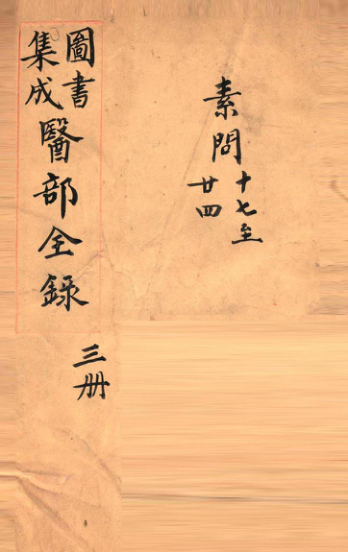 素問
十七至
廿四
圖書
集成
醫部全錄
三册